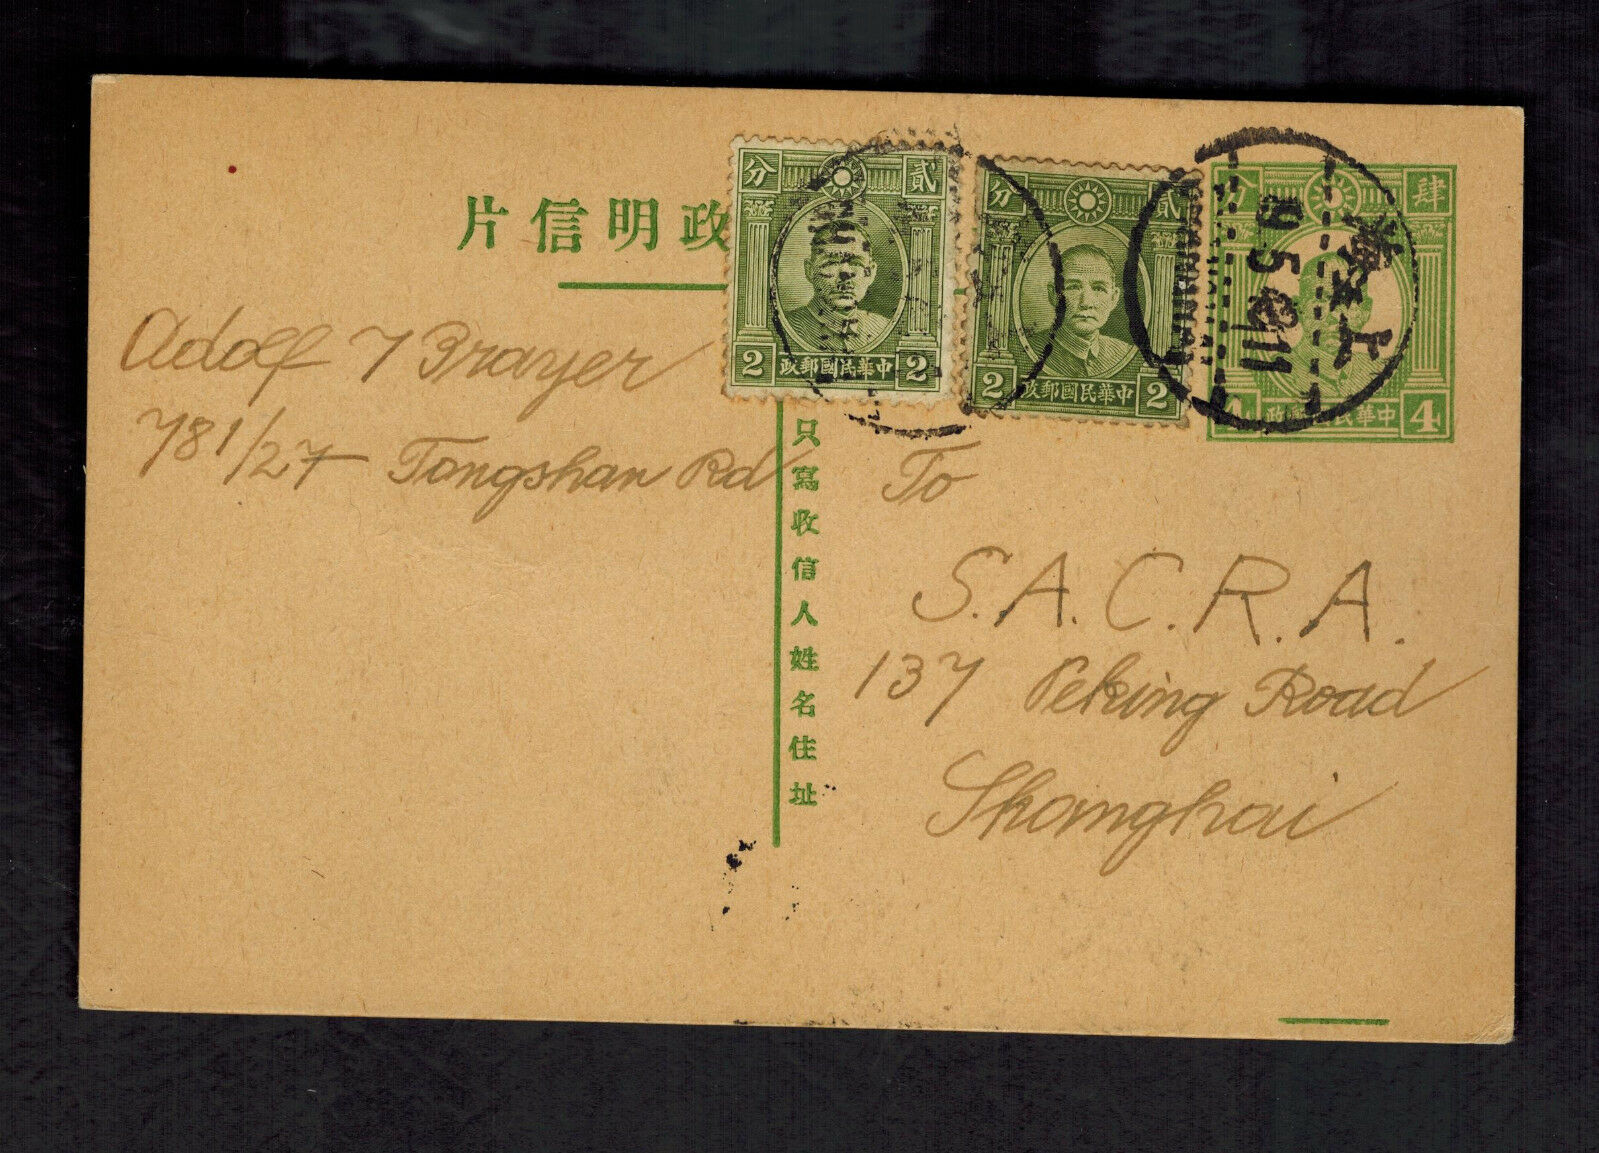 政明信片
分 貳
2 政郵國民華中 2
分 貳
2 政郵國民華中 2
分 肆
4 政郵國民華中 4
上海
19 5 2111
Adolf 7 Brayer
781/27 Tongshan Rd
只寫收信人姓名住址
To
S.A.C.R.A.
137 Peking Road
Shanghai